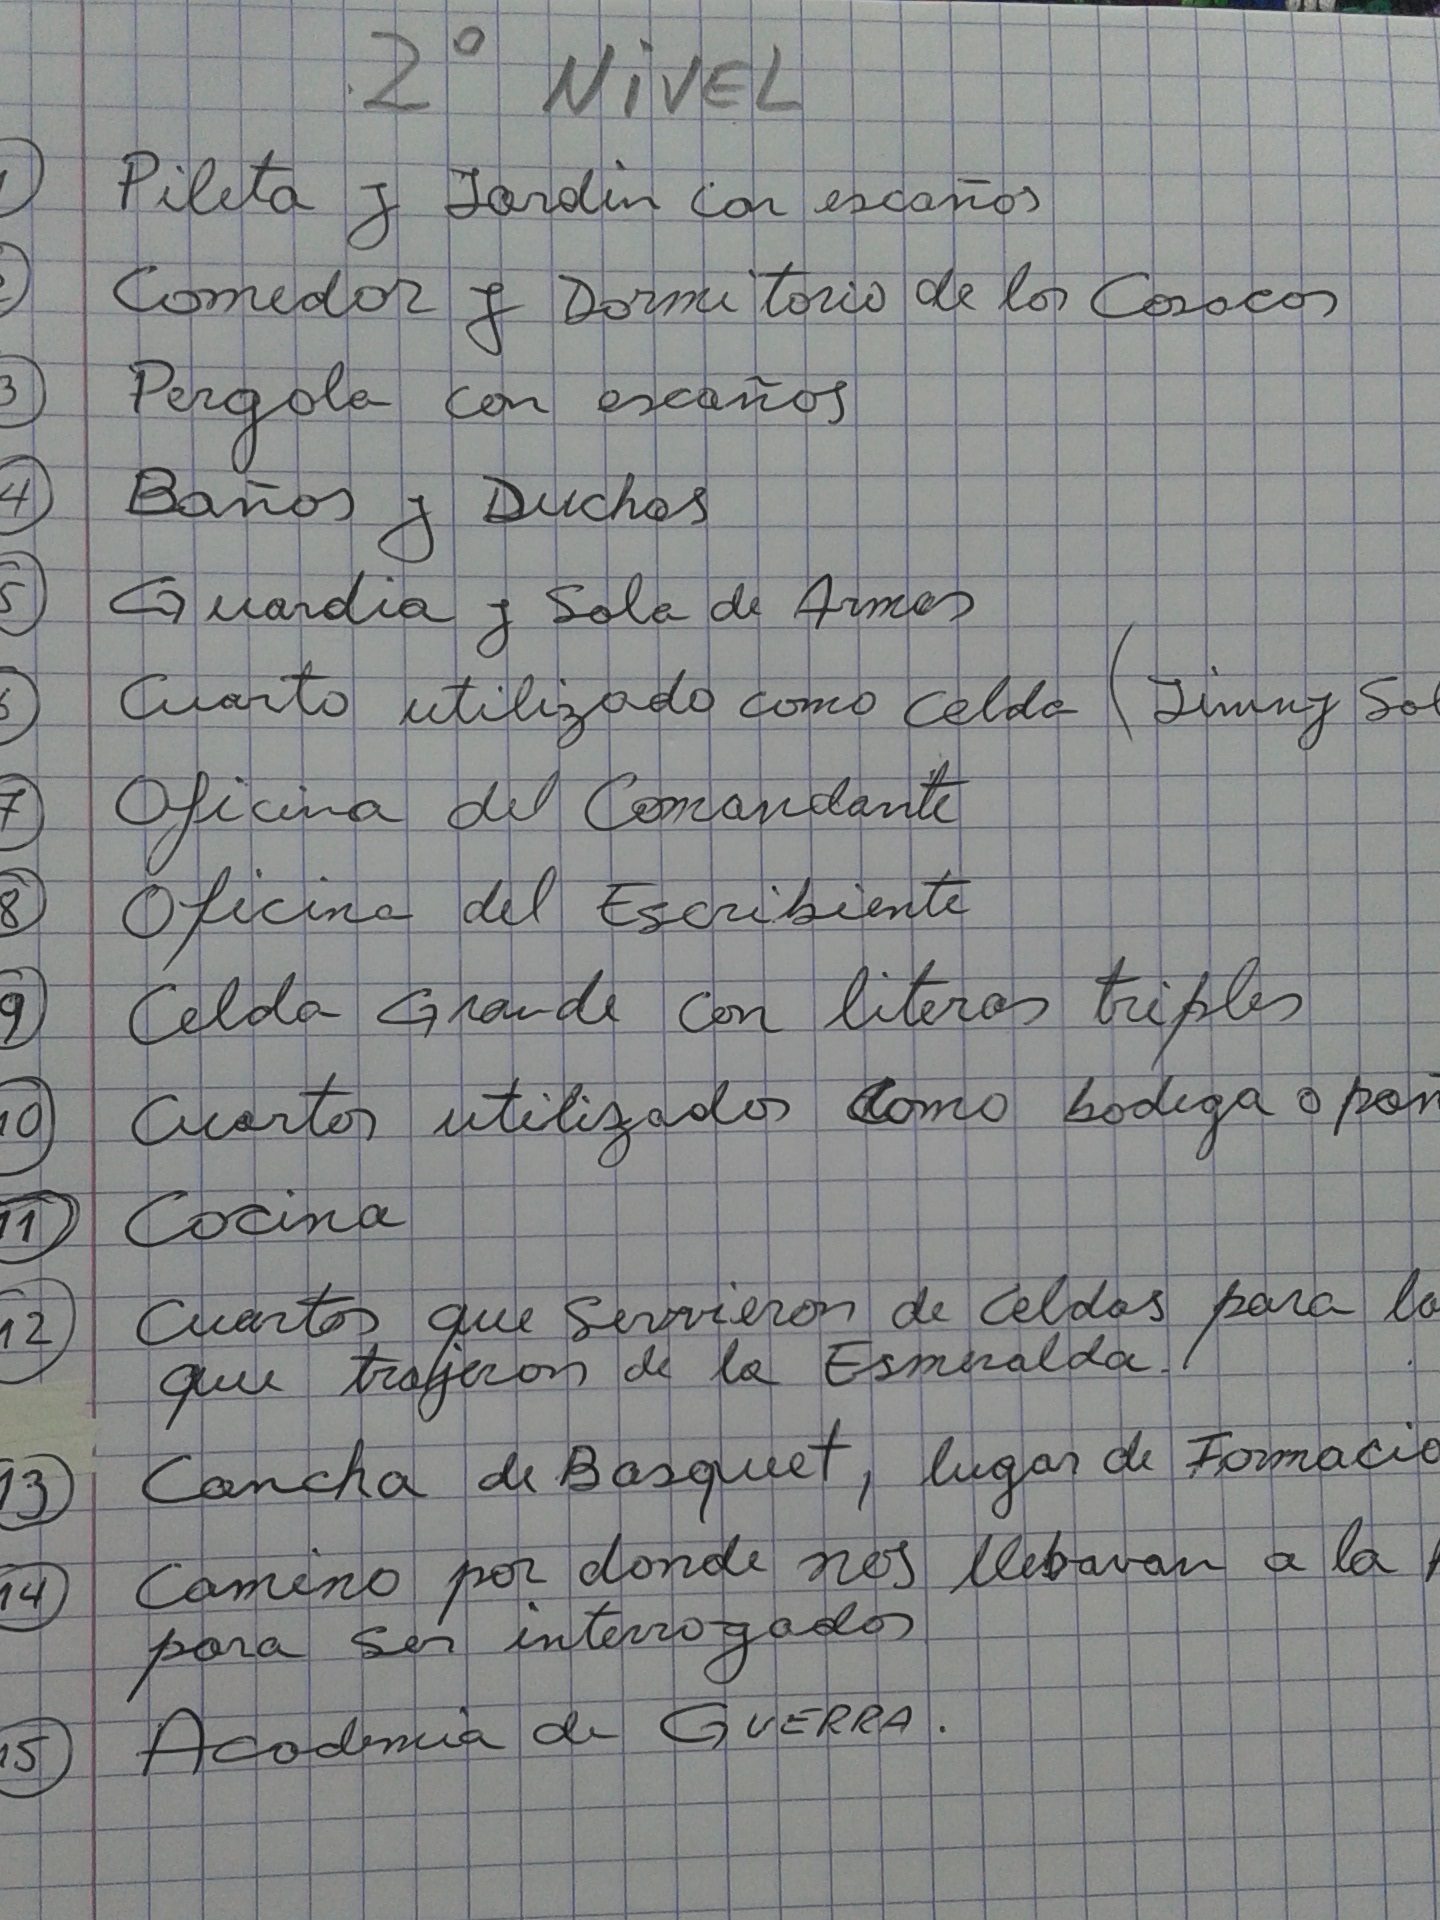 2° NiVEL
1 Pileta y Jardin con escaños
2 Comedor y Dormitorio de los Cosacos
3 Pergola con escaños
4 Baños y Duchas
5 Guardia y Sala de Armas
6 Cuarto utilizado como celda (Jimmy Sol
7 Oficina del Comandante
8 Oficina del Escribiente
9 Celda Grande con literas triples
10 Cuartos utilizados como bodega o pañ
11 Cocina
12 Cuartos que Servieron de celdas para lo
que trajeron de la Esmeralda.
13 Cancha de Basquet, lugar de Formacio
14 Camino por donde nos llebavan a la A
para ser interrogados
15 Academia de GUERRA.